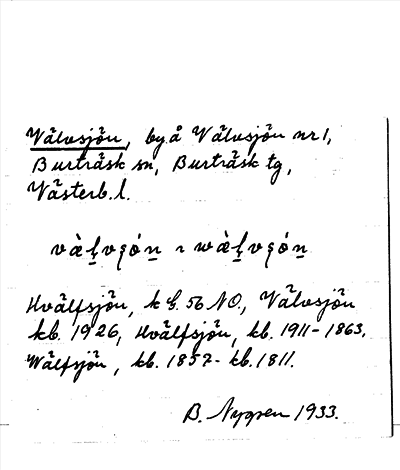 Välvsjön, by å Välvsjön nr 1,
Burträsk sn, Burträsk tg,
Västerb. l.
Hvälfsjön, k G. 56 NO, Välvsjön
kb. 1926, Hvälfsjön, kb. 1911-1863,
Wälfsjön, kb. 1857- kb. 1811.
B. Nygren 1933.